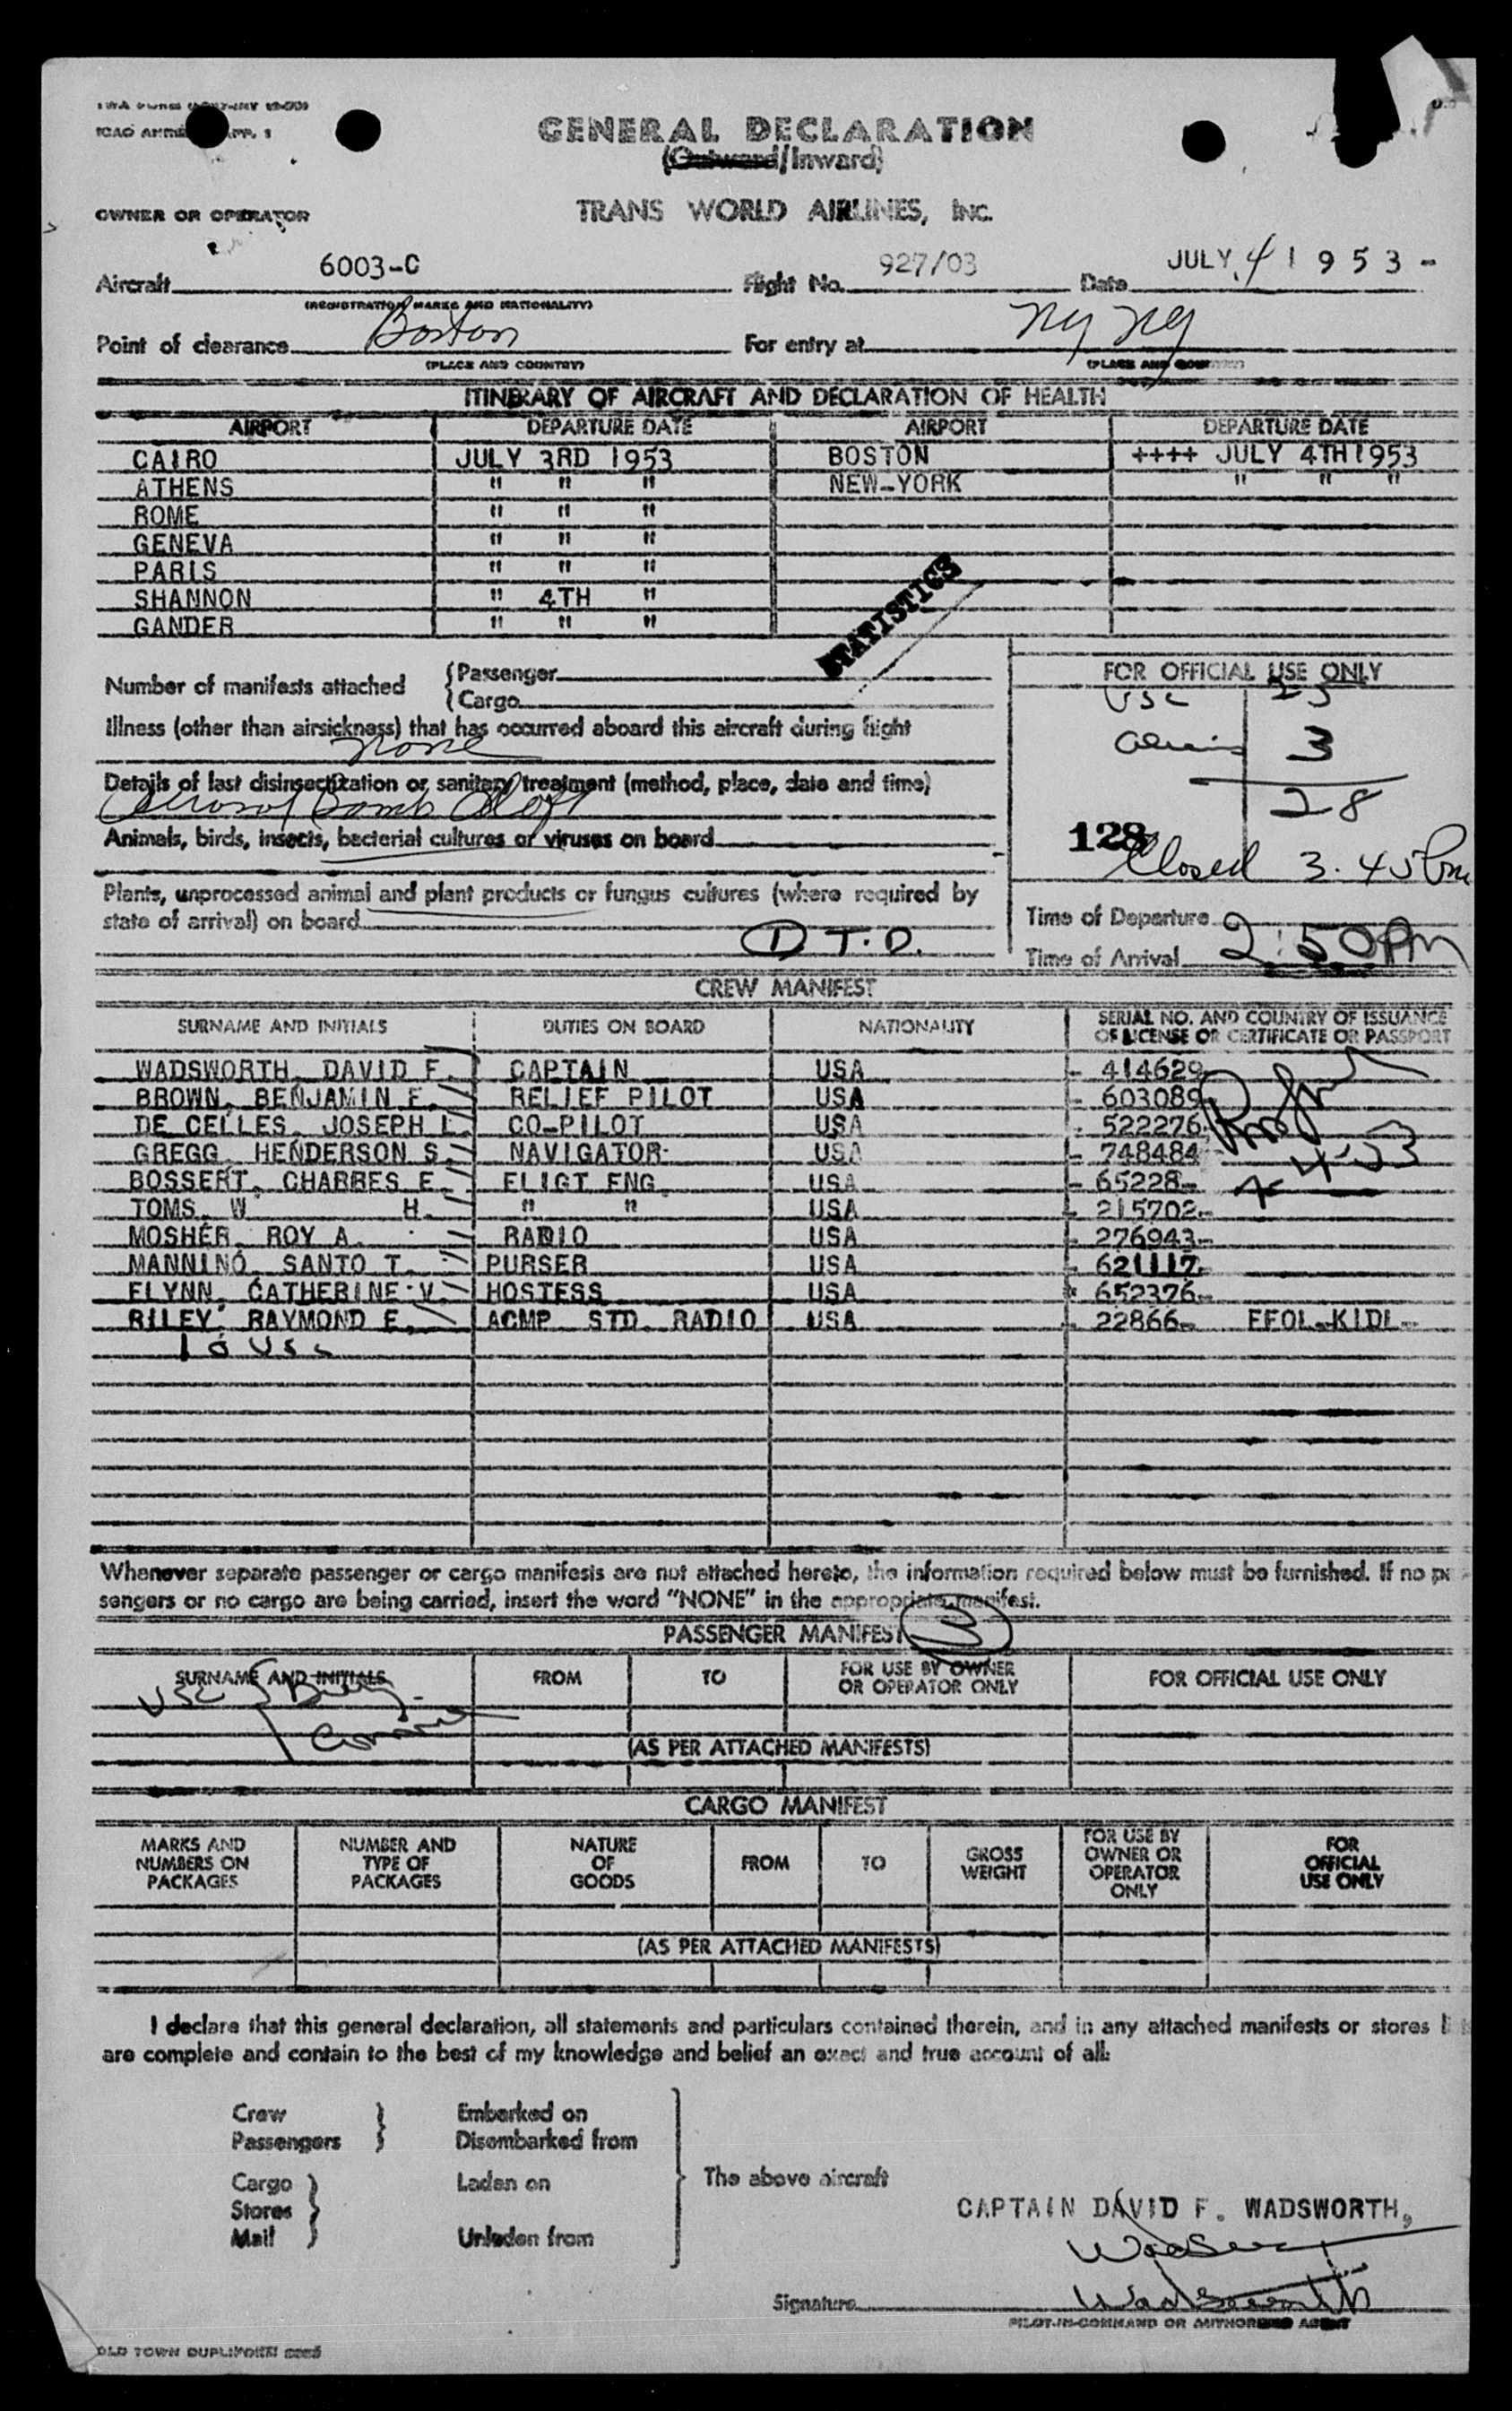 GENERAL DECLARATION
(Outward/Inward)
OWNER OR OPERATOR TRANS WORLD AIRLINES, INC.
Aircraft 6003-C Flight No. 927/03 Date JULY 4 1953-
(REGISTRATION MARKS AND NATIONALITY)
Point of clearance Boston For entry at NY NY
(PLACE AND COUNTRY) (PLACE AND COUNTRY)
ITINERARY OF AIRCRAFT AND DECLARATION OF HEALTH
AIRPORT DEPARTURE DATE AIRPORT DEPARTURE DATE
CAIRO JULY 3RD 1953 BOSTON ++++ JULY 4TH 1953
ATHENS " " " NEW-YORK " " "
ROME " " "
GENEVA " " "
PARIS " " "
SHANNON " 4TH "
GANDER " " "
STATISTICS
Number of manifests attached {Passenger
{Cargo
FOR OFFICIAL USE ONLY
USC 25
Aliens 3
28
128
Closed 3.45 Pm
Illness (other than airsickness) that has occurred aboard this aircraft during flight
none
Details of last disinsectization or sanitary treatment (method, place, date and time)
Aerosol Bomb Aloft
Animals, birds, insects, bacterial cultures or viruses on board
Plants, unprocessed animal and plant products or fungus cultures (where required by
state of arrival) on board
D T.D.
Time of Departure
Time of Arrival 2:50 Pm
CREW MANIFEST
SURNAME AND INITIALS DUTIES ON BOARD NATIONALITY SERIAL NO. AND COUNTRY OF ISSUANCE
OF LICENSE OR CERTIFICATE OR PASSPORT
WADSWORTH, DAVID F. CAPTAIN USA - 414629-
BROWN, BENJAMIN E. RELIEF PILOT USA - 603089-
DE CELLES, JOSEPH L. CO-PILOT USA - 522276
GREGG, HENDERSON S. NAVIGATOR USA - 748484
BOSSERT, CHARRES E. FLIGT ENG. USA - 65228-
TOMS, W H. " " USA - 215702-
MOSHER, ROY A. RADIO USA - 276943-
MANNINO, SANTO T. PURSER USA - 621117-
FLYNN, CATHERINE V. HOSTESS USA - 652376-
RILEY, RAYMOND E. ACMP STD. RADIO USA - 22866- EFOL-KIDL-
10 USC
Whenever separate passenger or cargo manifests are not attached hereto, the information required below must be furnished. If no
sengers or no cargo are being carried, insert the word "NONE" in the appropriate manifest.
PASSENGER MANIFEST 3
SURNAME AND INITIALS FROM TO FOR USE BY OWNER
OR OPERATOR ONLY FOR OFFICIAL USE ONLY
USC
(AS PER ATTACHED MANIFESTS)
CARGO MANIFEST
MARKS AND
NUMBERS ON
PACKAGES
NUMBER AND
TYPE OF
PACKAGES
NATURE
OF
GOODS
FROM
TO
GROSS
WEIGHT
FOR USE BY
OWNER OR
OPERATOR
ONLY
FOR
OFFICIAL
USE ONLY
(AS PER ATTACHED MANIFESTS)
I declare that this general declaration, all statements and particulars contained therein, and in any attached manifests or stores
are complete and contain to the best of my knowledge and belief an exact and true account of all:
Crew } Embarked on
Passengers } Disembarked from
Cargo } Laden on
Stores
Mail } Unladen from
The above aircraft
CAPTAIN DAVID F. WADSWORTH,
Signature Wadsworth
PILOT-IN-COMMAND OR AUTHORIZED AGENT